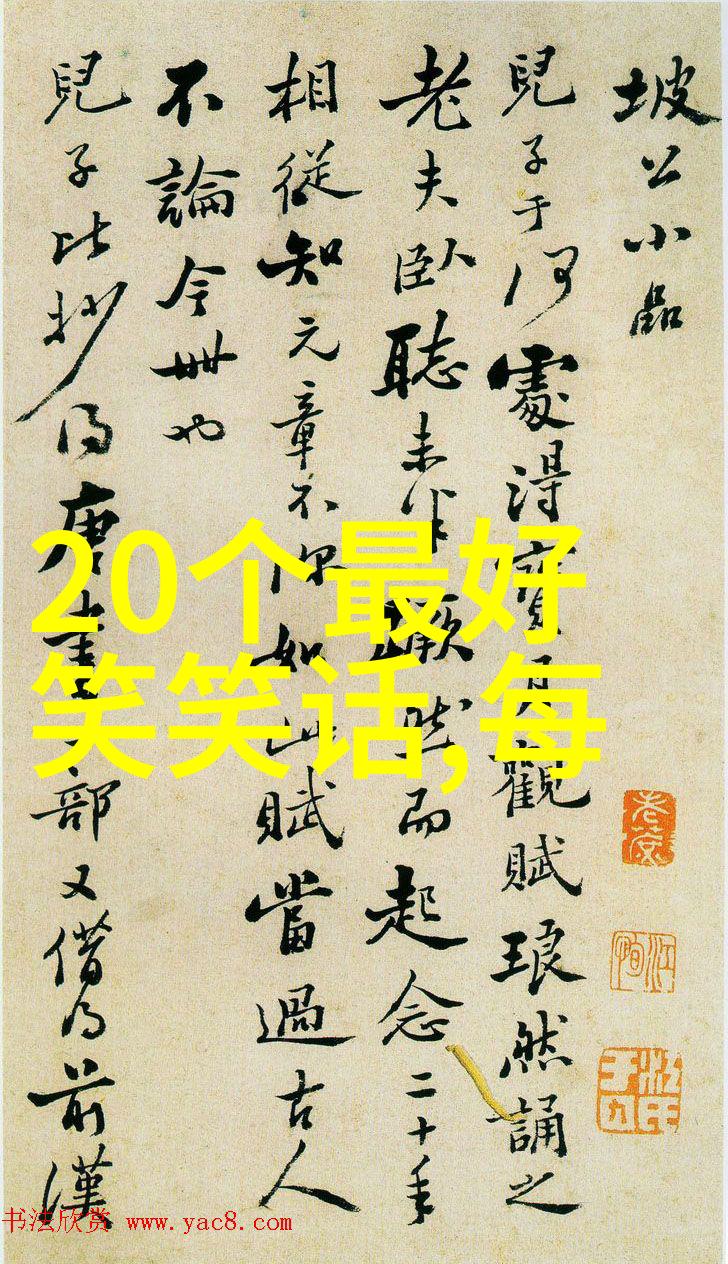 坡公小品
兒子于何處得寶月觀賦琅然誦之
老夫臥聽未半蹶然而起念二十年
相從知元章不深如此賦當過古人
不論今世也
兒子比抄得唐書一部又借得前漢
20个最好
笑笑话,每
书法欣赏 www.yac8.com